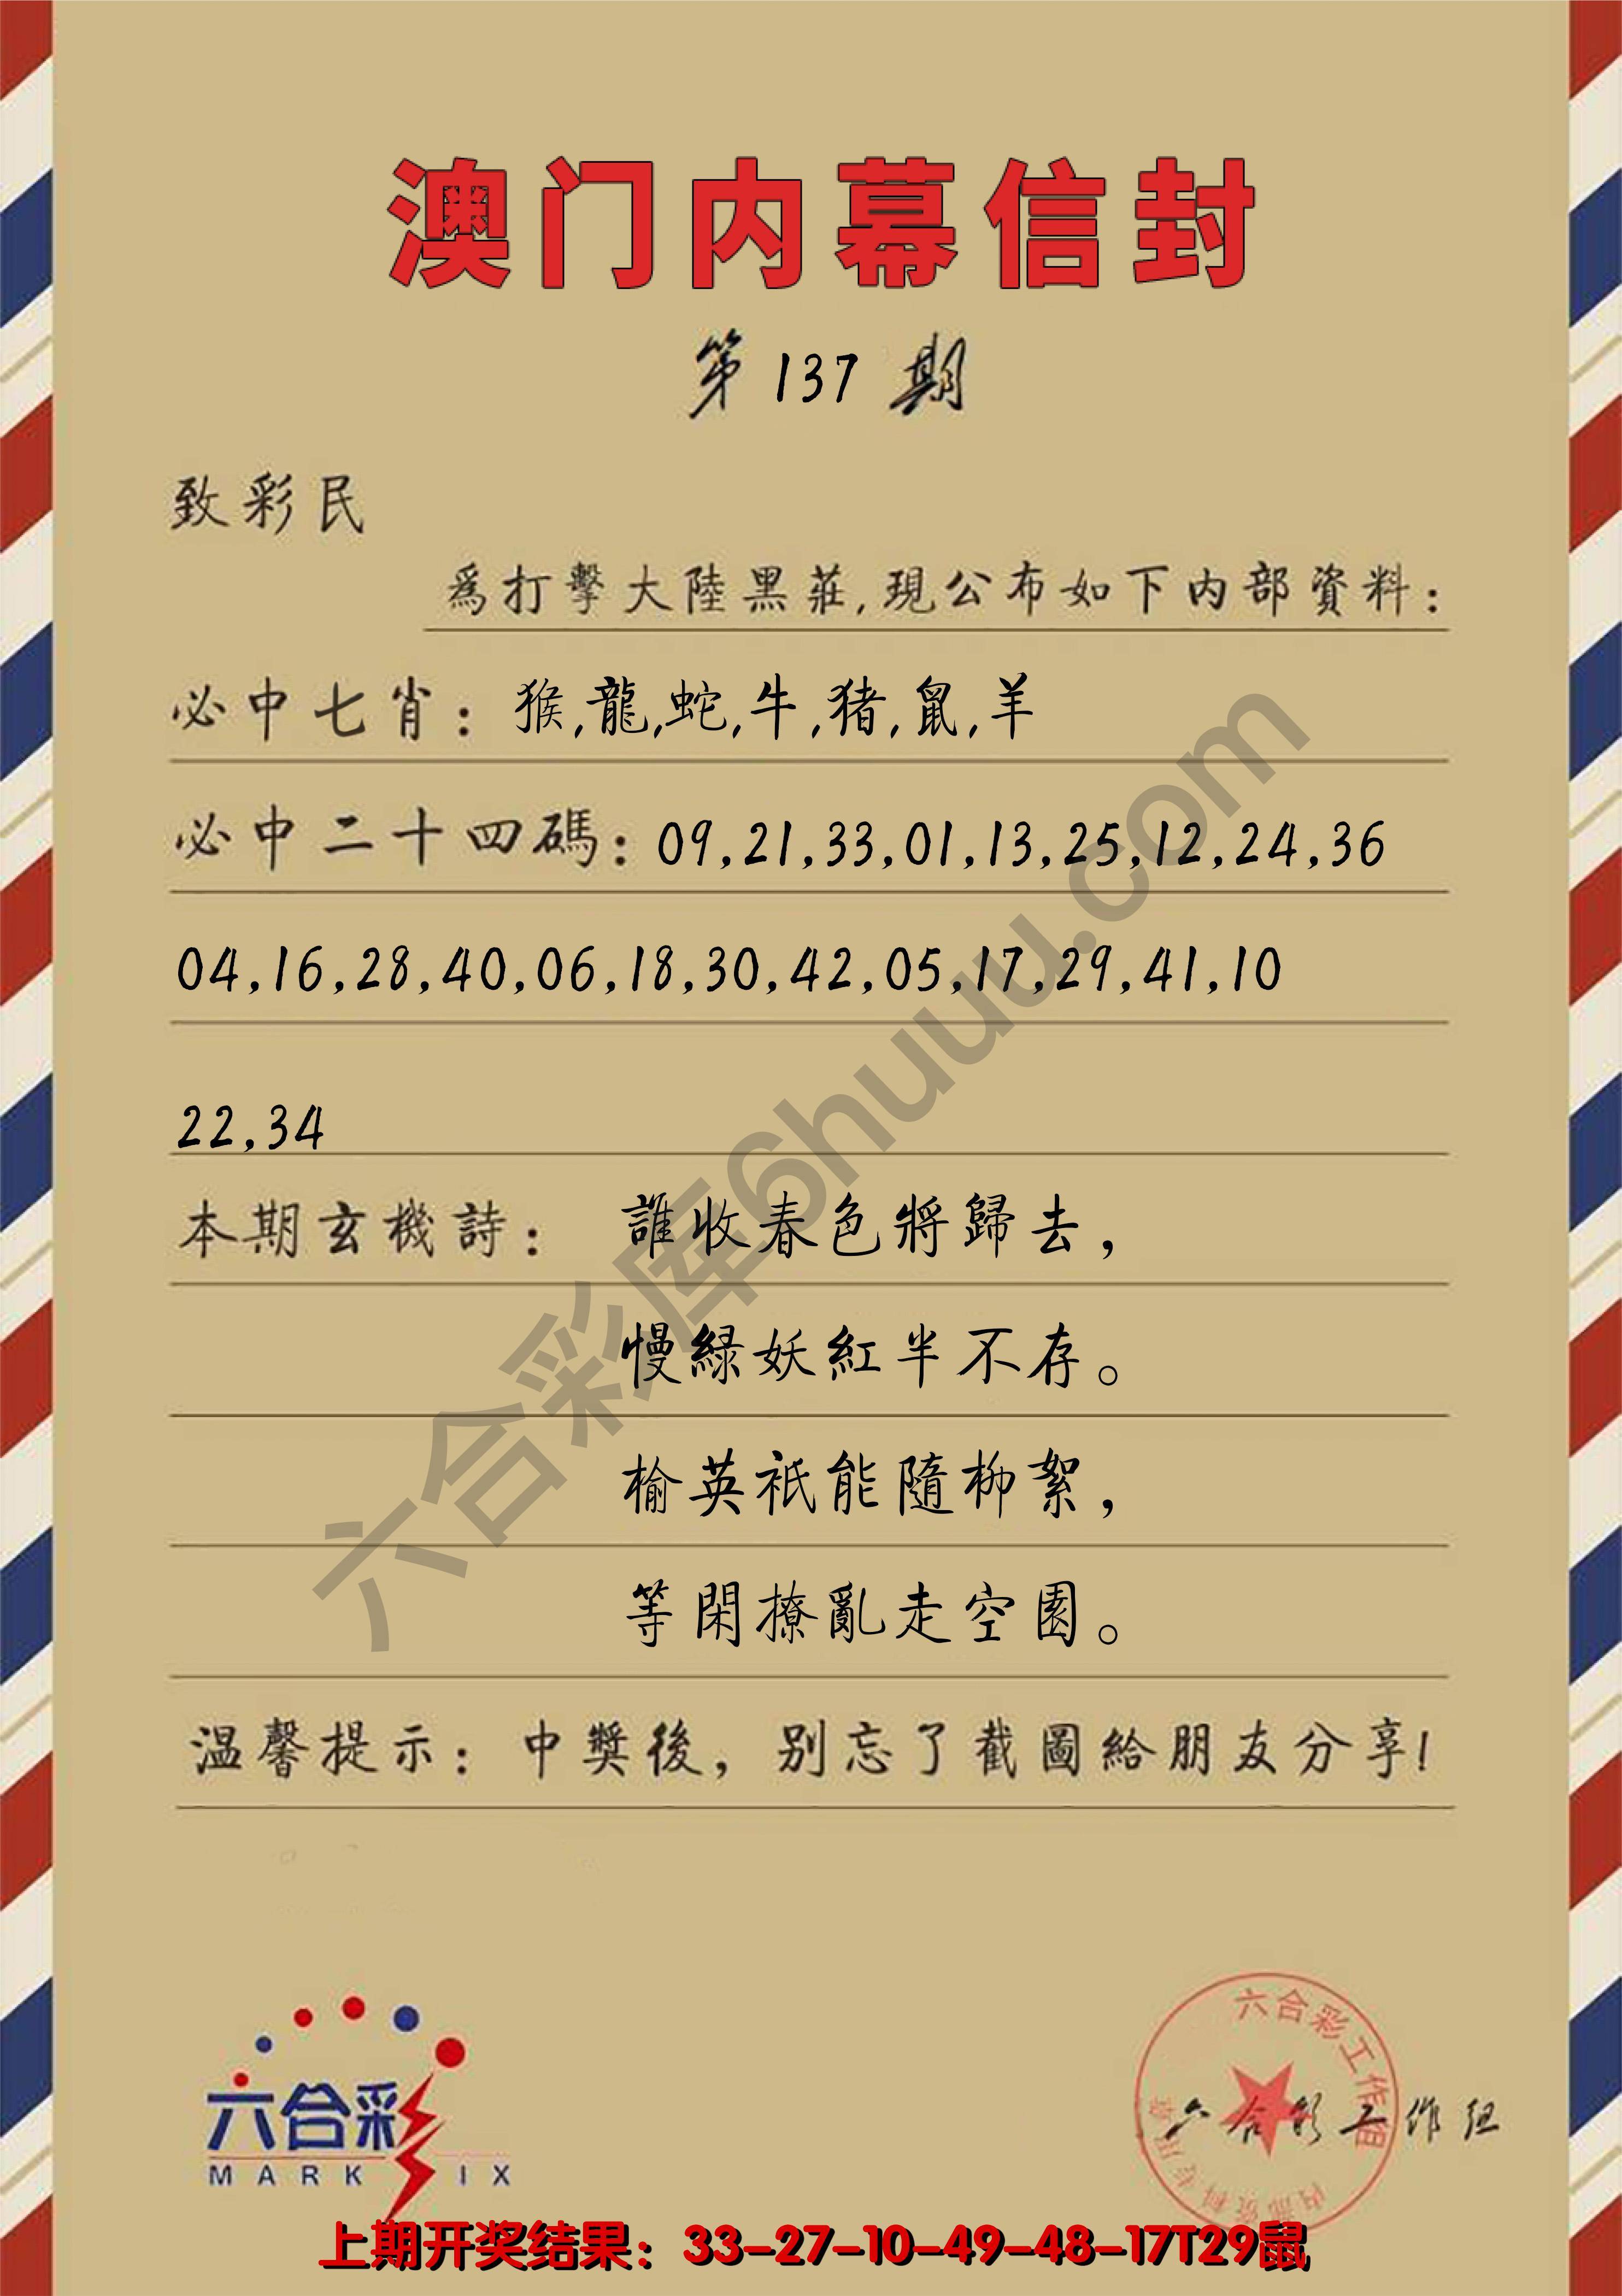 澳门内幕信封
第137期
致彩民
為打擊大陸黑莊,現公布如下内部資料:
必中七肖: 猴,龍,蛇,牛,猪,鼠,羊
必中二十四碼: 09,21,33,01,13,25,12,24,36
04,16,28,40,06,18,30,42,05,17,29,41,10
22,34
本期玄機詩: 誰收春色將歸去,
慢緑妖紅半不存。
榆英祇能隨柳絮,
等閑撩亂走空園。
温馨提示: 中獎後，别忘了截圖給朋友分享!
六合彩库6huuu.com
六合彩
MARK IX
六合彩工作组
内部资料专用章
六合彩工作组
上期开奖结果：33-27-10-49-48-17T29鼠